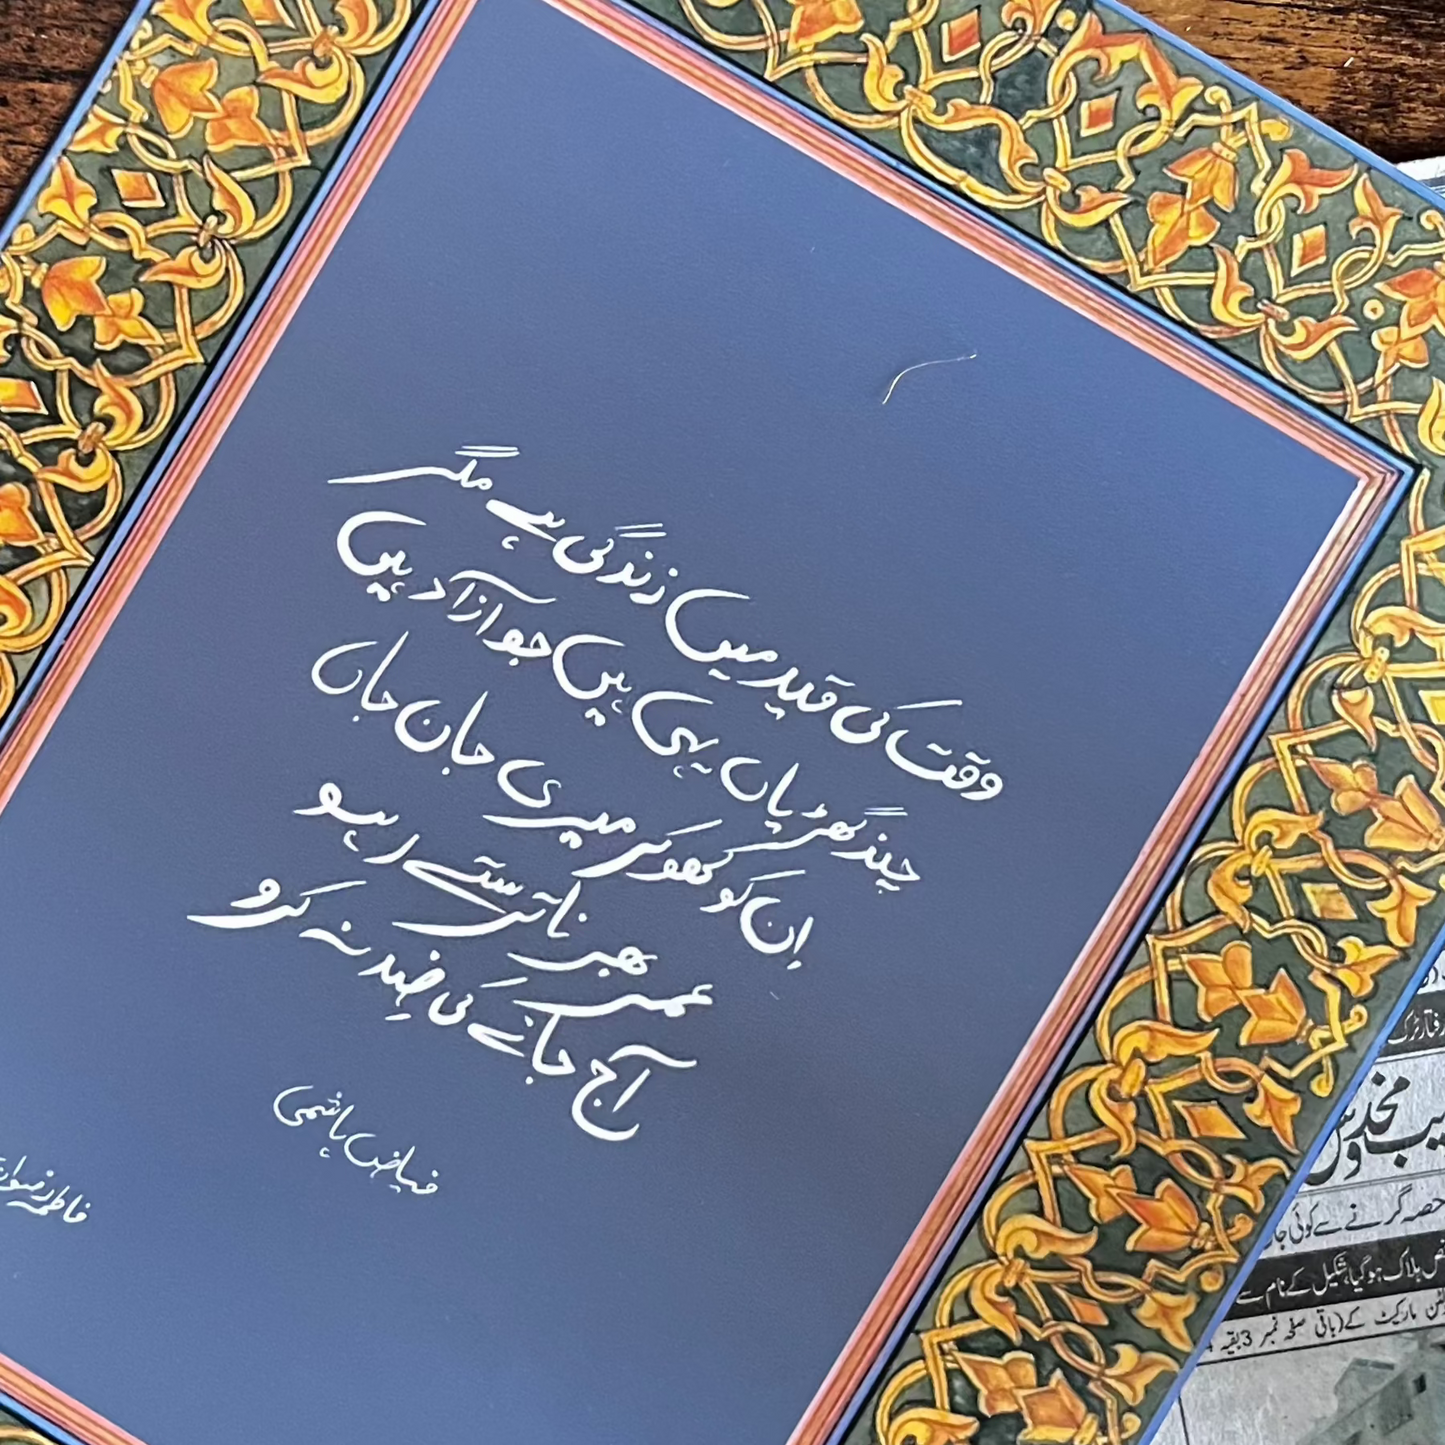 وقت کی قید میں زندگی ہے مگر
چند گھڑیاں یہی ہیں جو آزاد ہیں
اِن کو کھو کر میری جان جاں
عمر بھر نا ترستے رہو
آج جانے کی ضد نہ کرو
فیاض ہاشمی
فاطمہ
حصہ گرنے سے کوئی
ہلاک ہوگیا، شکیل کے نام سے
مارکیٹ کے (باقی صفحہ نمبر 3 بقیہ